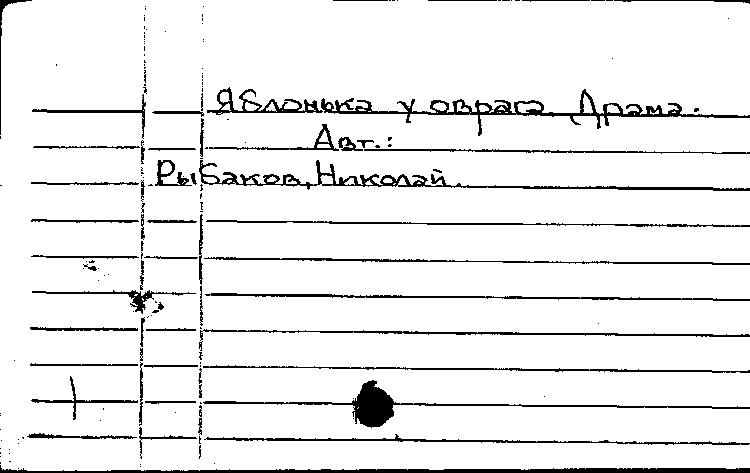 Яблонька у оврага Драма.
Авт.:
Рыбаков, Николай.